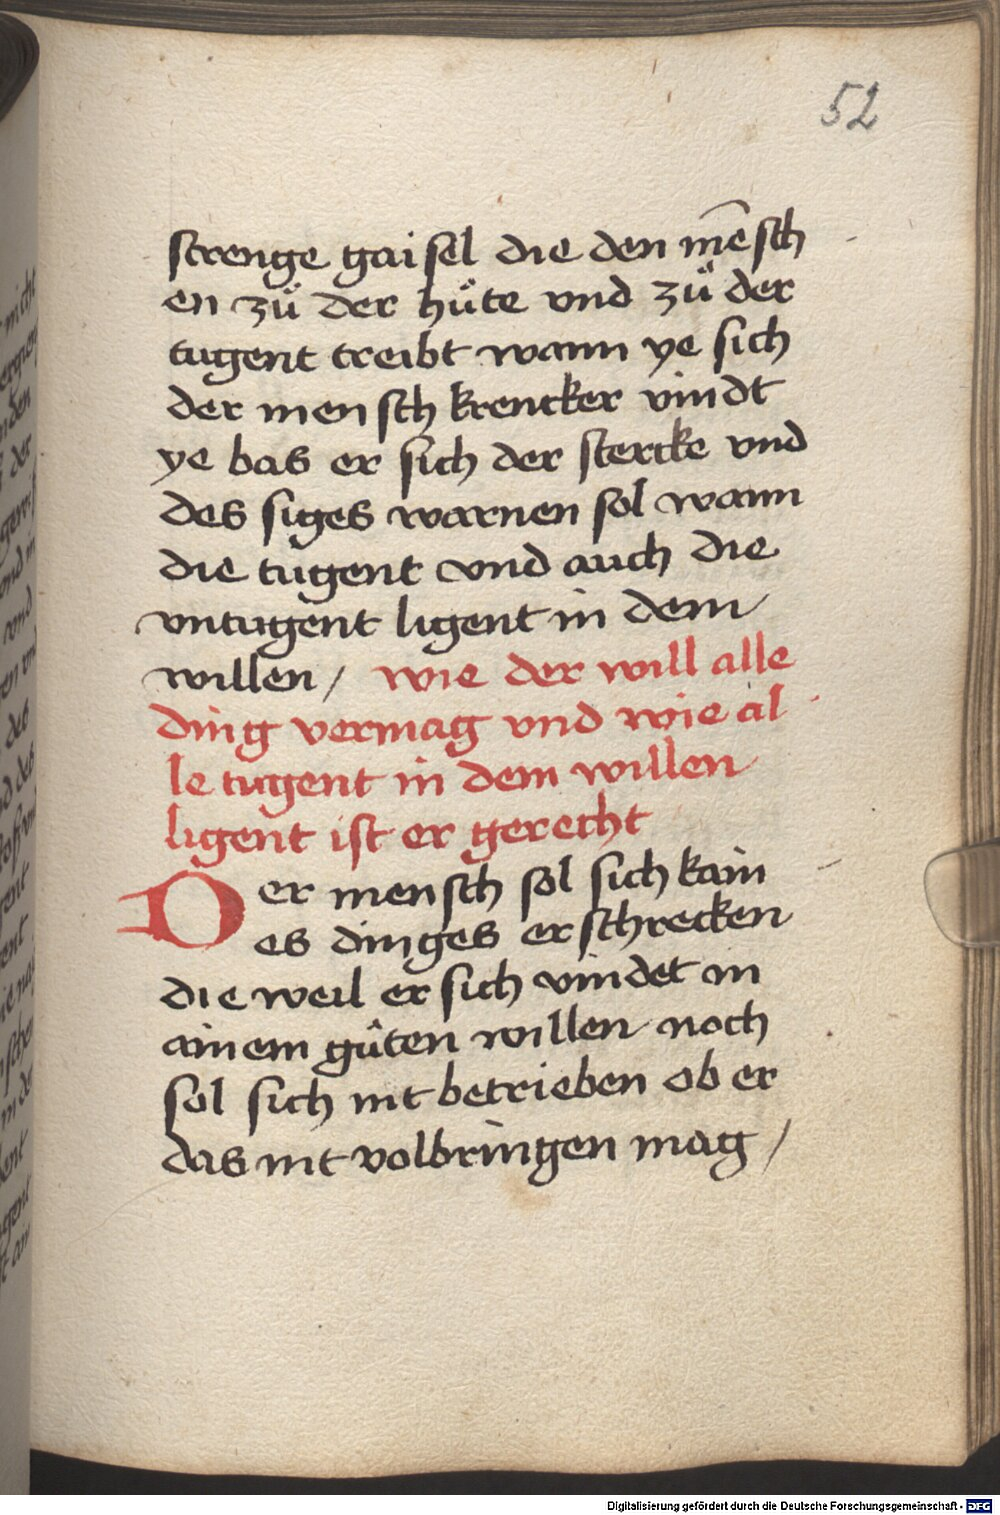 52
strenge gaisel die den mēsch
en zuͦ der huͦte vnd zuͦ der
tugent treibt wann ye sich
der mensch krencker vindt
ye bas er sich der stercke vnd
des siges warnen sol wann
die tugent vnd auch die
vntugent ligent in dem
willen / wie der will alle
ding vermag vnd wie al
le tugent in dem willen
ligent ist er gerecht
Der mensch sol sich kain
es dinges erschrecken
die weil er sich vindet in
ainem guͦten willen noch
sol sich nit betrieben ob er
das nit volbringen mag /
Digitalisierung gefördert durch die Deutsche Forschungsgemeinschaft - DFG